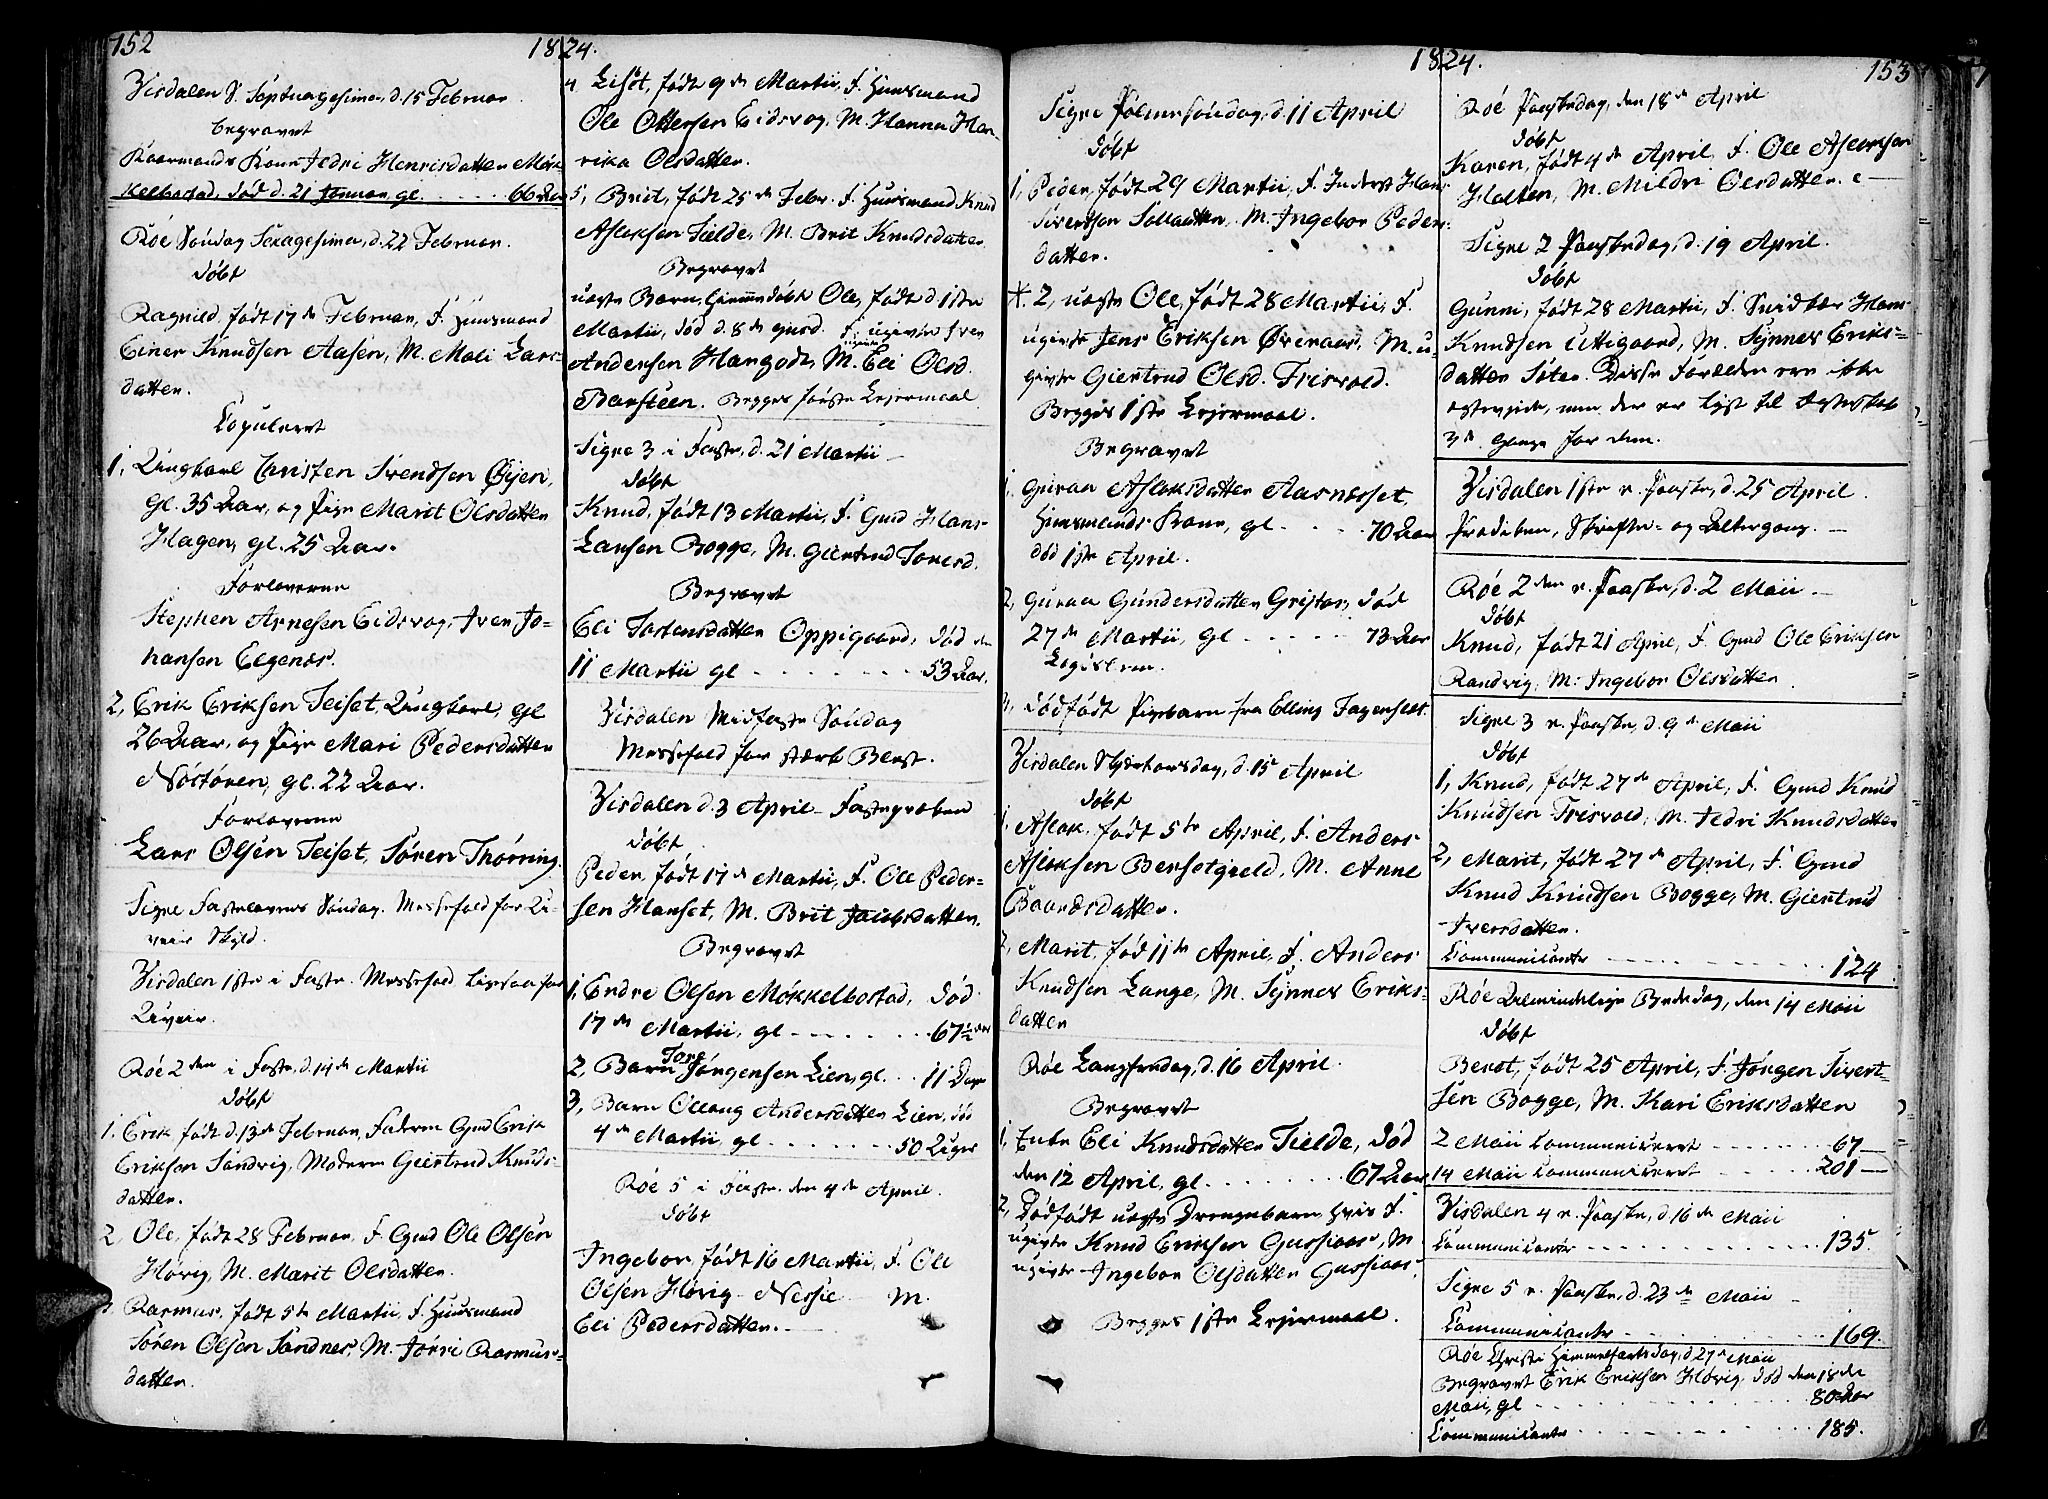 152
1824.
Visdalen S. Septuagesima, d. 15 Februar
begravet
Kaarmands Kone Jedri Henrisdatter Møk-
kelbostad, død d. 21 Januar gl. 66 Aar
Røe Søndag Sexagesima, d. 22 Februar.
døbt
Ragnild, født 17de Februar, F. Huusmand
Einer Knudsen Aasen, M. Mali Lars-
datter.
Copuleret
1, Ungkarl Christen Svendsen Øyen,
gl. 35 Aar, og Pige Marit Olsdatter
Hagen, gl. 25 Aar.
Forloverne
Stephen Arnesen Eidsvog, Iver Jo-
hansen Elgenes.
2, Erik Eriksen Teiset, Ungkarl, gl
26 Aar, og Pige Mari Pedersdatter
Nøstøren, gl. 22 Aar.
Forloverne
Lars Olsen Teiset, Søren Thørring.
Signe Fastelavens Søndag. Messefald for U-
veir Skyld.
Visdalen 1ste i Faste. Messefald ligesaa for
Uveir.
Røe 2den i Faste, d. 14de Martii
døbt
1, Erik født d. 13de Februar, Faderen Gmd Erik
Eriksen Sandvig, Moderen Giertrud Knuds-
datter.
2, Ole, født 28 Februar, F. Gmd Ole Olsen
Høvig, M. Marit Olsdatter.
3, Rasmus, født 5te Martii, F. Huusmand
Søren Olsen Sandnes, M. Jørri Rasmus-
datter.
4 Lisøt, født 9de Martii, F. Huusmand
Ole Ottersen Eidsvog, M. Hanna Hen-
rika Olsdatter.
5, Brit, født 25de Febr. F. Huusmand Knud
Aslaksen Tielde, M. Brit Knudsdatter
Begravet
uægte Barn, hiemmedøbt Ole, født d 1ste
Martii, død d. 8de ejusd. F. ugivte Iver
Andersen Hargodt, M. ugivte Eli Olsd.
Barsteen. Begges første Leiermaal
Signe 3 i Faste, d. 21 Martii
døbt
Knud, født 13 Martii, F. Gmd Hans
Larsen Bogge, M. Giertrud Toresd.
Begravet
Eli Torstensdatter Oppigaard, død den
11 Martii gl 53 Aar.
Visdalen Midfaste Søndag
Messefald for stærk Blæst.
Visdalen d. 3 April Fasteprædiken
døbt
Peder, født 17de Martii, F. Ole Peder-
sen Hanset, M. Brit Jacobsdatter.
Begravet
1, Endre Olsen Møkkelbostad, død
17de Martii, gl 67½ Aar
2, Barn Tore Jørgensen Lien, gl. 11 Dage
3, Barn Ollaug Andersdatter Lien, død
4de Martii, gl 50 Uger
Røe 5 i Faste. den 4de April.
døbt
Ingebor, født 16 Martii, F. Ole
Olsen Høvig Nessie M.
Eli Pedersdatter.
1824.
153
Signe Palmesøndag, d. 11 April
døbt
1, Peder, født 29 Martii, F. Inderst Hans
Sivertsen Sollautten, M. Ingebor Peders-
datter.
*. 2, uægte Ole, født 28 Martii, F.
ugivte Jens Eriksen Øveraas, M. u-
givte Giertrud Olsd. Frisvold.
Begges 1ste Leiermaal.
Begravet
1, Guraa Aslaksdatter Aarnesset,
Huusmands Kone, gl 70 Aar
død 1ste April.
2, Guraa Gundersdatter Gristar, død
27de Martii, gl 73 Aar
Logistrue.
3, dødfødt Pigebarn fra Elling Fagerslet.
Visdalen Skjærtorsdag, d. 15de April
døbt
1, Aslak, født 5te April, F. Anders
Aslaksen Bersotgield, M. Anne
Baardsdatter.
2, Marit, fød 11te April, F. Anders
Knudsen Lange, M. Synnes Eriks-
datter
Røe Langfredag, d. 16 April.
Begravet
1, Enke Eli Knudsdatter Tielde, død
den 12 April, gl. 67 Aar
2, dødfødt uægte Drengebarn, hvis F.
ugivte Knud Eriksen Gussiaas, M
ugivte Ingebor Olsdatter Gussiaas.
Begges 1ste Leiermaal.
Røe Paaskedag, den 18de April
døbt
Karen, født 4de April, F. Ole Aslaksen
Holten, M. Mildri Olsdatter.
Signe 2 Paaskedag, d. 19 April.
døbt
Gunni, født 28 Martii, F. Hans
Knudsen Uttigaard, M. Synnes Eriks-
datter Søter. Disse Forældre ere ikke
egteviede, men der er lyst til Ægteskab
3de Gange for dem.
Visdalen 1ste e. Paaske, d. 25 April.
Prædiken, Skrifte- og Altergang.
Røe 2den e. Paaske, d. 2 Maii
døbt
Knud, født 21 April, F. Gmd Ole Eriksen
Randvig, M. Ingebor Olsdatter
Signe 3 e. Paaske, d. 9de Maii
døbt
1, Knud, født 27de April, F. Gmd Knud
Knudsen Frisvold, M. Jedri Knudsdatter
2, Marit, født 27de April, F. Gmd
Knud Knudsen Bogge, M. Giertrud
Iversdatter.
Communicanter 124
Røe Almindelige Bededag, den 14 Maii
døbt
Beret, født 25 April, F. Jørgen Sivert-
sen Bogge, M. Kari Eriksdatter
2 Maii Communiceret 67
14 Maii Communiceret 201
Visdalen 4 e. Paaske, d. 16de Maii
Communicanter 135.
Signe 5 e. Paaske, d. 23de Maii
Communicanter 169.
Røe Christi Himmelfartsdag, d. 27de Maii
Begravet Erik Eriksen Høvig, død den 18de
Maii, gl 80 Aar
Communicanter 185.